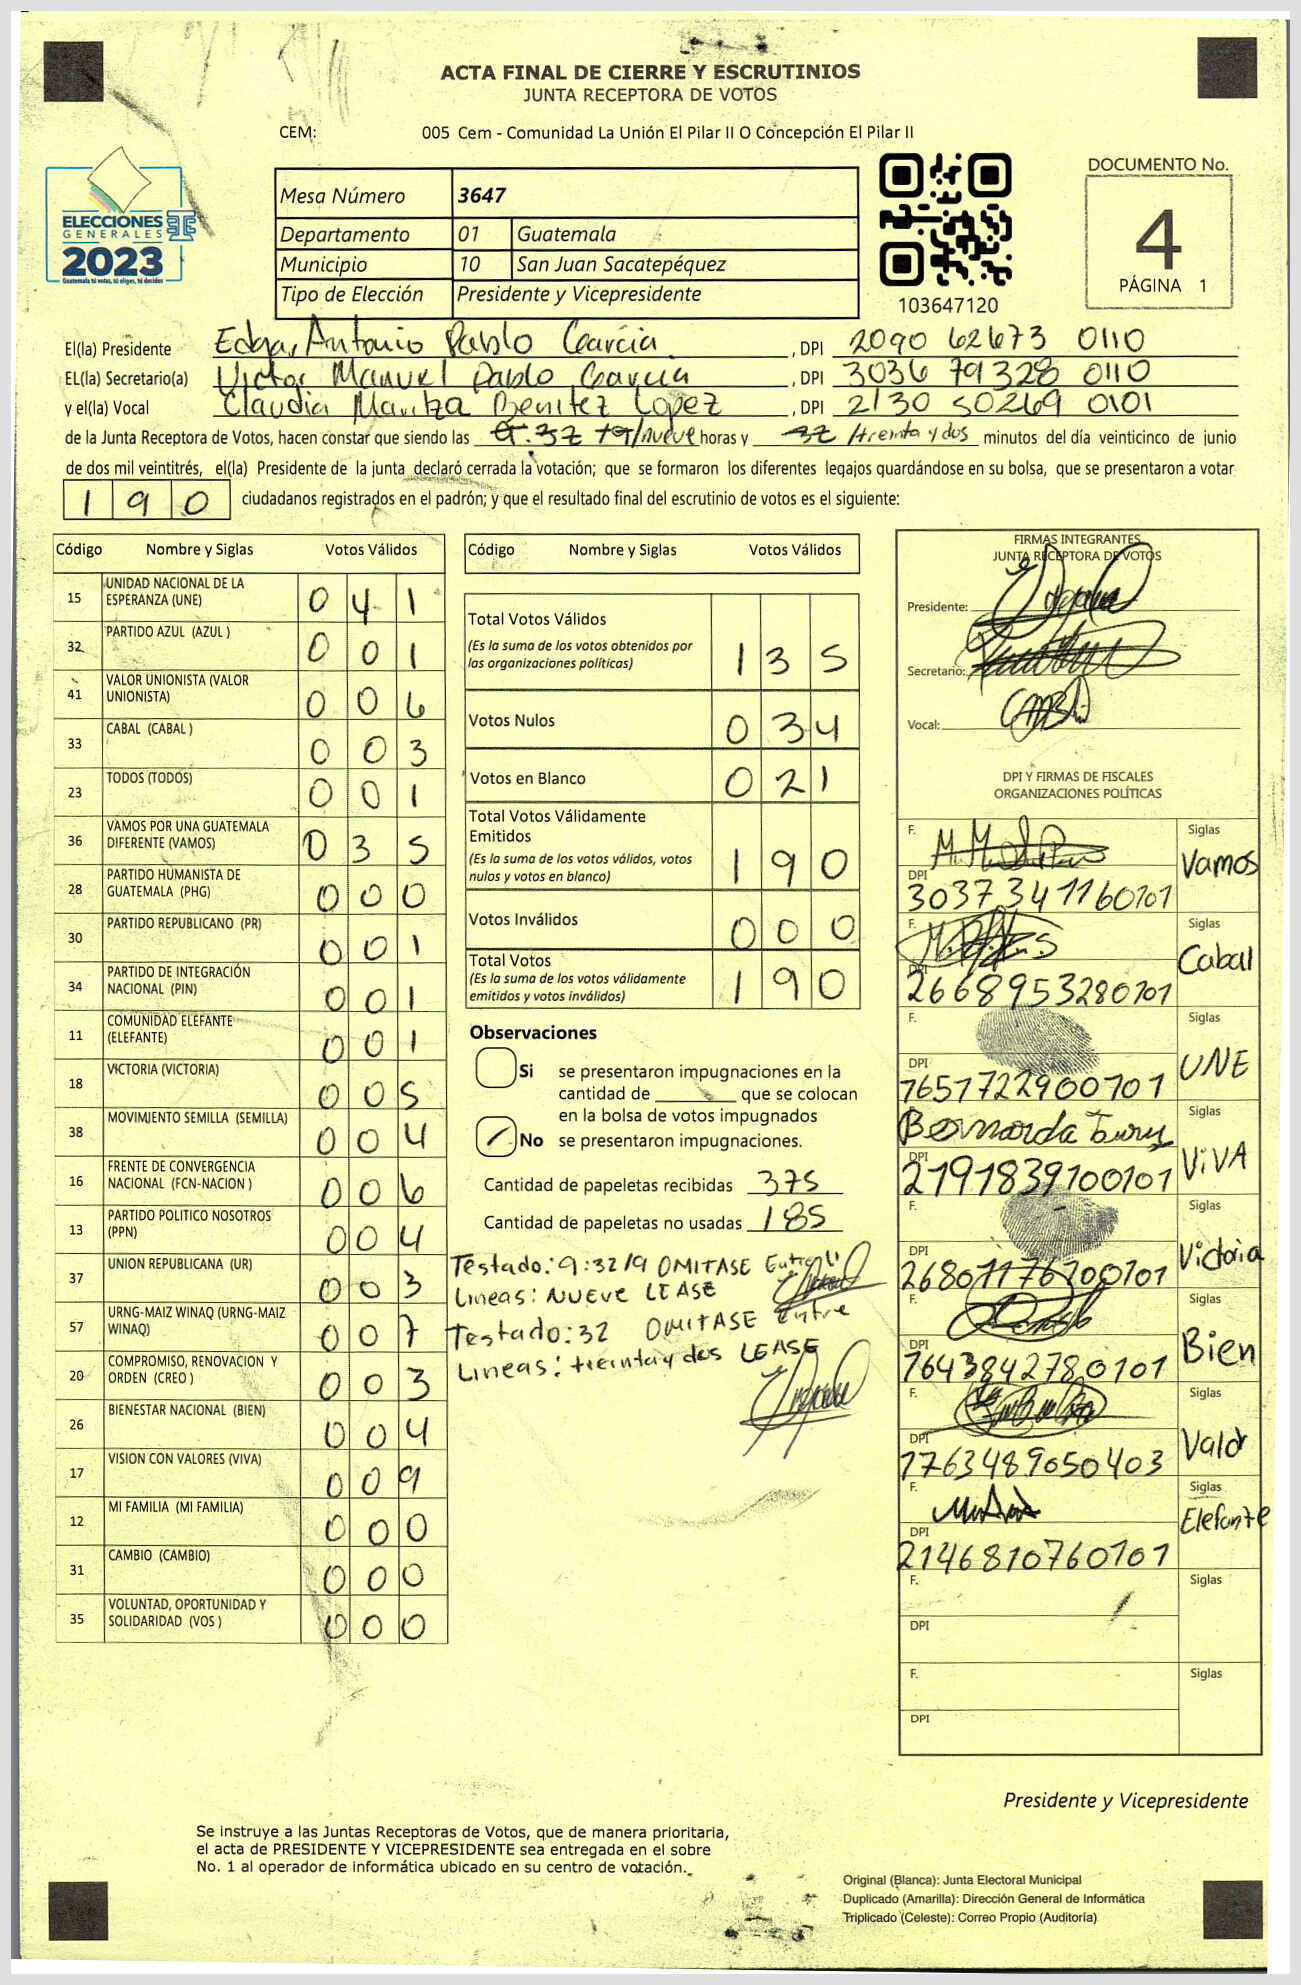 ACTA FINAL DE CIERRE Y ESCRUTINIOS
JUNTA RECEPTORA DE VOTOS
CEM: 005 Cem - Comunidad La Unión El Pilar II O Concepción El Pilar II
ELECCIONES
GENERALES
2023
Guatemala tú votas, tú eliges, tú decides
Mesa Número 3647
Departamento 01 Guatemala
Municipio 10 San Juan Sacatepéquez
Tipo de Elección Presidente y Vicepresidente
103647120
DOCUMENTO No.
4
PÁGINA 1
El(la) Presidente Edgar Antonio Pablo Garcia , DPI 2090 62673 0110
EL(la) Secretario(a) Victor Manuel Pablo Garcia , DPI 3036 79328 0110
y el(la) Vocal Claudia Maritza Benitez Lopez , DPI 2130 50269 0101
de la Junta Receptora de Votos, hacen constar que siendo las /nueve horas y 32 /treinta y dos minutos del día veinticinco de junio
de dos mil veintitrés, el(la) Presidente de la junta declaró cerrada la votación; que se formaron los diferentes legajos guardándose en su bolsa, que se presentaron a votar
190 ciudadanos registrados en el padrón; y que el resultado final del escrutinio de votos es el siguiente:
Código Nombre y Siglas Votos Válidos
15 UNIDAD NACIONAL DE LA ESPERANZA (UNE) 041
32 PARTIDO AZUL (AZUL ) 001
41 VALOR UNIONISTA (VALOR UNIONISTA) 006
33 CABAL (CABAL ) 003
23 TODOS (TODOS) 001
36 VAMOS POR UNA GUATEMALA DIFERENTE (VAMOS) 035
28 PARTIDO HUMANISTA DE GUATEMALA (PHG) 000
30 PARTIDO REPUBLICANO (PR) 001
34 PARTIDO DE INTEGRACIÓN NACIONAL (PIN) 001
11 COMUNIDAD ELEFANTE (ELEFANTE) 001
18 VICTORIA (VICTORIA) 005
38 MOVIMIENTO SEMILLA (SEMILLA) 004
16 FRENTE DE CONVERGENCIA NACIONAL (FCN-NACION ) 006
13 PARTIDO POLITICO NOSOTROS (PPN) 004
37 UNION REPUBLICANA (UR) 003
57 URNG-MAIZ WINAQ (URNG-MAIZ WINAQ) 007
20 COMPROMISO, RENOVACION Y ORDEN (CREO ) 003
26 BIENESTAR NACIONAL (BIEN) 004
17 VISION CON VALORES (VIVA) 009
12 MI FAMILIA (MI FAMILIA) 000
31 CAMBIO (CAMBIO) 000
35 VOLUNTAD, OPORTUNIDAD Y SOLIDARIDAD (VOS ) 000
Código Nombre y Siglas Votos Válidos
Total Votos Válidos 135
(Es la suma de los votos obtenidos por
las organizaciones políticas)
Votos Nulos 034
Votos en Blanco 021
Total Votos Válidamente
Emitidos 190
(Es la suma de los votos válidos, votos
nulos y votos en blanco)
Votos Inválidos 000
Total Votos 190
(Es la suma de los votos válidamente
emitidos y votos inválidos)
Observaciones
Si se presentaron impugnaciones en la
cantidad de que se colocan
en la bolsa de votos impugnados
No se presentaron impugnaciones.
Cantidad de papeletas recibidas 375
Cantidad de papeletas no usadas 185
Testado: 9:32/9 OMITASE Entre
Lineas: NUEVE LEASE
Testado: 32 OMITASE Entre
Lineas: treinta y dos LEASE
FIRMAS INTEGRANTES
JUNTA RECEPTORA DE VOTOS
Presidente:
Secretario:
Vocal:
DPI Y FIRMAS DE FISCALES
ORGANIZACIONES POLÍTICAS
F. Siglas
Vamos
DPI
3037341160101
F. Siglas
Cabal
DPI
2668953280101
F. Siglas
UNE
DPI
1651722900101
Bernarda Siglas
ViVA
DPI
2191839100101
F. Siglas
Victoria
DPI
26801176100101
F. Siglas
Bien
DPI
1643842780101
F. Siglas
Valor
DPI
1763489050403
F. Siglas
Elefante
DPI
2146810760101
F. Siglas
DPI
F. Siglas
DPI
Presidente y Vicepresidente
Se instruye a las Juntas Receptoras de Votos, que de manera prioritaria,
el acta de PRESIDENTE Y VICEPRESIDENTE sea entregada en el sobre
No. 1 al operador de informática ubicado en su centro de votación.
Original (Blanca): Junta Electoral Municipal
Duplicado (Amarilla): Dirección General de Informática
Triplicado (Celeste): Correo Propio (Auditoría)